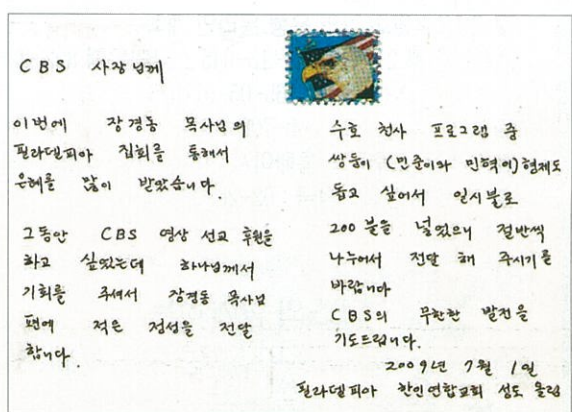 CBS 사장님께
이번에 장경동 목사님의
필라델피아 집회를 통해서
은혜를 많이 받았습니다.
그동안 CBS 영상 선교 후원을
하고 싶었는데 하나님께서
기회를 주셔서 장경동 목사님
편에 적은 정성을 전달
합니다.
수호 천사 프로그램 중
쌍둥이 (민준이와 민혁이) 형제도
돕고 싶어서 일시불로
200불을 넣었으니 절반씩
나누어서 전달 해 주시기를
바랍니다
CBS의 무한한 발전을
기도드립니다.
2009년 7월 1일
필라델피아 한인연합교회 성도 올림